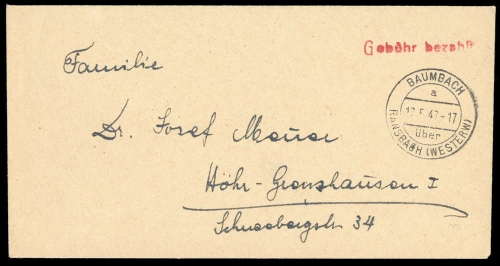 Gebühr bezahlt
BAUMBACH
a
17.5.47-17
über
RANSBACH (WESTERW)
Familie
Dr. Josef Mauer
Höhr-Grenzhausen I
Schneebergstr 34